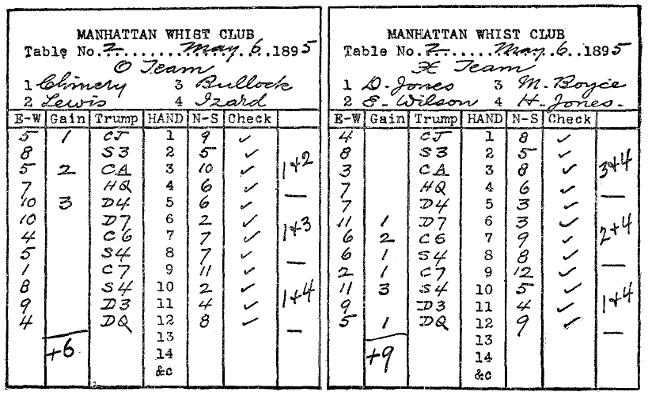 MANHATTAN WHIST CLUB
Table No. 2 ........ May 6 .. 1895
O Team
1 Chinery 3 Bullock
2 Lewis 4 Izard
E-W Gain Trump HAND N-S Check
5 1 CJ 1 9 ✓
8 S3 2 5 ✓
5 2 CA 3 10 ✓ 1+2
7 HQ 4 6 ✓ —
10 3 D4 5 6 ✓
10 D7 6 2 ✓
4 C6 7 7 ✓ 1+3
5 S4 8 7 ✓ —
1 C7 9 11 ✓
8 S4 10 2 ✓ 1+4
9 D3 11 4 ✓
4 DQ 12 8 ✓ —
13
+6 14
&c
MANHATTAN WHIST CLUB
Table No. 2 ........ May 6 .. 1895
X Team
1 D. Jones 3 M. Boyce
2 E. Wilson 4 H. Jones.
E-W Gain Trump HAND N-S Check
4 CJ 1 8 ✓
8 S3 2 5 ✓
3 CA 3 8 ✓ 3+4
7 HQ 4 6 ✓ —
7 D4 5 3 ✓
11 1 D7 6 3 ✓
6 2 C6 7 9 ✓ 2+4
6 1 S4 8 8 ✓ —
2 1 C7 9 12 ✓
11 3 S4 10 5 ✓ 1+4
9 D3 11 4 ✓
5 1 DQ 12 9 ✓ —
13
+9 14
&c